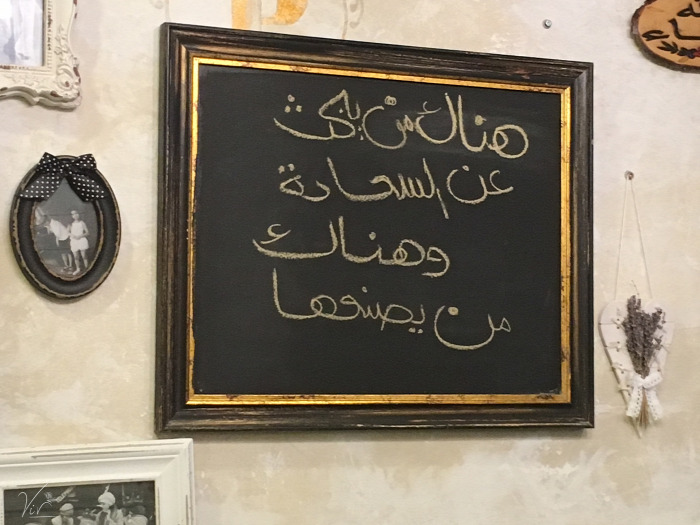 هناك من يبحث
عن السعادة
وهناك
من يصنعها
Vir